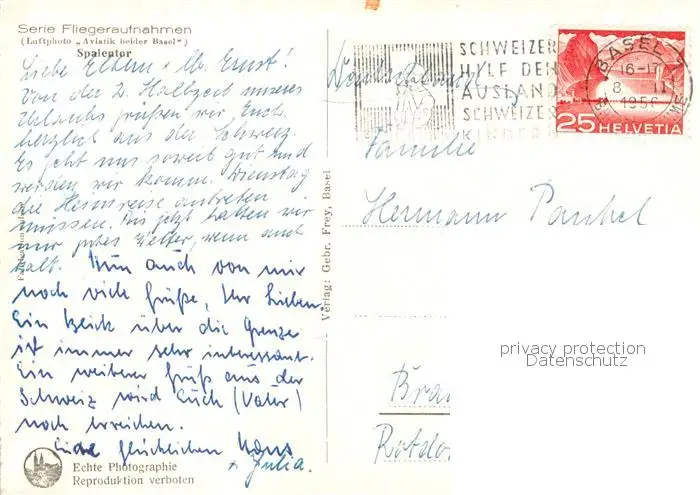 Serie Fliegeraufnahmen
(Luftphoto „Aviatik beider Basel")
Spalentor
Liebe Eltern u. lb. Ernst!
Von der 2. Halbzeit unseres
Urlaubs grüßen wir Euch
herzlich aus der Schweiz.
Es geht uns soweit gut und
werden wir komm. Dienstag
die Heimreise antreten
müssen. Bis jetzt hatten wir
nur gutes Wetter, wenn auch
kalt. Nun auch von mir
noch viele Grüße, Ihr Lieben.
Ein Blick über die Grenze
ist immer sehr interessant.
Ein weiterer Gruß aus der
Schweiz wird Euch (Vater)
noch erreichen.
Eure glücklichen Hans
+ Julia.
Echte Photographie
Reproduktion verboten
Verlag: Gebr. Frey, Basel
Deutschland
SCHWEIZER
HILF DEN
AUSLAND
SCHWEIZER
KINDERN
BASEL
16-17
8 II
1956
25 HELVETIA
Familie
Hermann
privacy protection
Datenschutz
Bra
Rotdo